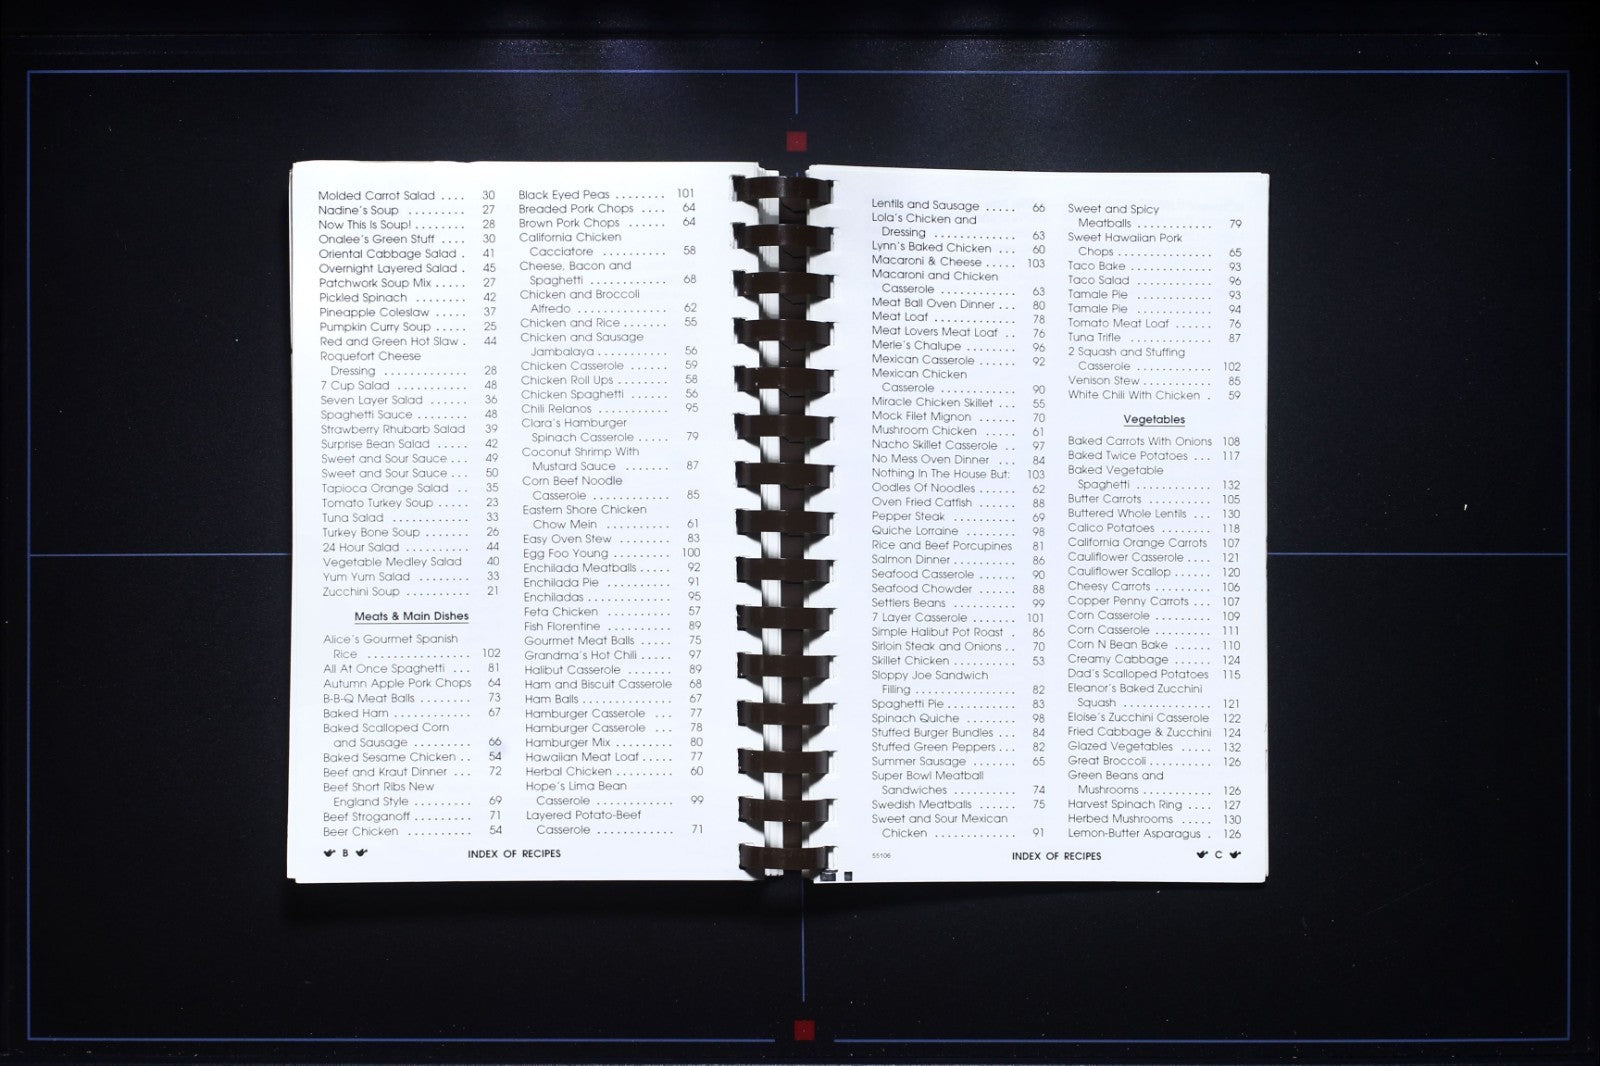 Molded Carrot Salad .... 30
Nadine's Soup ......... 27
Now This Is Soup! ........ 28
Onalee's Green Stuff .... 30
Oriental Cabbage Salad . 41
Overnight Layered Salad . 45
Patchwork Soup Mix ..... 27
Pickled Spinach ........ 42
Pineapple Coleslaw ..... 37
Pumpkin Curry Soup ..... 25
Red and Green Hot Slaw . 44
Roquefort Cheese
Dressing ............. 28
7 Cup Salad ........... 48
Seven Layer Salad ...... 36
Spaghetti Sauce ........ 48
Strawberry Rhubarb Salad 39
Surprise Bean Salad ..... 42
Sweet and Sour Sauce ... 49
Sweet and Sour Sauce ... 50
Tapioca Orange Salad .. 35
Tomato Turkey Soup ..... 23
Tuna Salad ........... 33
Turkey Bone Soup ...... 26
24 Hour Salad ......... 44
Vegetable Medley Salad 40
Yum Yum Salad ........ 33
Zucchini Soup .......... 21
Meats & Main Dishes
Alice's Gourmet Spanish
Rice ................ 102
All At Once Spaghetti ... 81
Autumn Apple Pork Chops 64
B-B-Q Meat Balls ........ 73
Baked Ham ............ 67
Baked Scalloped Corn
and Sausage ......... 66
Baked Sesame Chicken .. 54
Beef and Kraut Dinner ... 72
Beef Short Ribs New
England Style ......... 69
Beef Stroganoff ......... 71
Beer Chicken .......... 54
Black Eyed Peas ........ 101
Breaded Pork Chops .... 64
Brown Pork Chops ...... 64
California Chicken
Cacciatore .......... 58
Cheese, Bacon and
Spaghetti ........... 68
Chicken and Broccoli
Alfredo ............. 62
Chicken and Rice ....... 55
Chicken and Sausage
Jambalaya .......... 56
Chicken Casserole ...... 59
Chicken Roll Ups ........ 58
Chicken Spaghetti ...... 56
Chili Relanos ........... 95
Clara's Hamburger
Spinach Casserole ..... 79
Coconut Shrimp With
Mustard Sauce ....... 87
Corn Beef Noodle
Casserole ........... 85
Eastern Shore Chicken
Chow Mein .......... 61
Easy Oven Stew ........ 83
Egg Foo Young ......... 100
Enchilada Meatballs ..... 92
Enchilada Pie .......... 91
Enchiladas ............. 95
Feta Chicken .......... 57
Fish Florentine ......... 89
Gourmet Meat Balls ..... 75
Grandma's Hot Chili ..... 97
Halibut Casserole ....... 89
Ham and Biscuit Casserole 68
Ham Balls ............. 67
Hamburger Casserole ... 77
Hamburger Casserole ... 78
Hamburger Mix ......... 80
Hawaiian Meat Loaf ..... 77
Herbal Chicken ......... 60
Hope's Lima Bean
Casserole ........... 99
Layered Potato-Beef
Casserole ........... 71
B INDEX OF RECIPES
Lentils and Sausage ..... 66
Lola's Chicken and
Dressing ............ 63
Lynn's Baked Chicken ... 60
Macaroni & Cheese ..... 103
Macaroni and Chicken
Casserole ........... 63
Meat Ball Oven Dinner ... 80
Meat Loaf ............ 78
Meat Lovers Meat Loaf .. 76
Merle's Chalupe ........ 96
Mexican Casserole ...... 92
Mexican Chicken
Casserole ........... 90
Miracle Chicken Skillet ... 55
Mock Filet Mignon ...... 70
Mushroom Chicken ..... 61
Nacho Skillet Casserole .. 97
No Mess Oven Dinner ... 84
Nothing In The House But: 103
Oodles Of Noodles ...... 62
Oven Fried Catfish ...... 88
Pepper Steak ......... 69
Quiche Lorraine ........ 98
Rice and Beef Porcupines 81
Salmon Dinner ......... 86
Seafood Casserole ...... 90
Seafood Chowder ...... 88
Settlers Beans ......... 99
7 Layer Casserole ....... 101
Simple Halibut Pot Roast . 86
Sirloin Steak and Onions .. 70
Skillet Chicken ......... 53
Sloppy Joe Sandwich
Filling .............. 82
Spaghetti Pie .......... 83
Spinach Quiche ........ 98
Stuffed Burger Bundles ... 84
Stuffed Green Peppers ... 82
Summer Sausage ....... 65
Super Bowl Meatball
Sandwiches ......... 74
Swedish Meatballs ...... 75
Sweet and Sour Mexican
Chicken ............ 91
Sweet and Spicy
Meatballs ........... 79
Sweet Hawaiian Pork
Chops .............. 65
Taco Bake ............ 93
Taco Salad ........... 96
Tamale Pie ........... 93
Tamale Pie ........... 94
Tomato Meat Loaf ...... 76
Tuna Trifle ............ 87
2 Squash and Stuffing
Casserole ........... 102
Venison Stew .......... 85
White Chili With Chicken . 59
Vegetables
Baked Carrots With Onions 108
Baked Twice Potatoes ... 117
Baked Vegetable
Spaghetti ........... 132
Butter Carrots ......... 105
Buttered Whole Lentils ... 130
Calico Potatoes ........ 118
California Orange Carrots 107
Cauliflower Casserole .... 121
Cauliflower Scallop ...... 120
Cheesy Carrots ........ 106
Copper Penny Carrots ... 107
Corn Casserole ........ 109
Corn Casserole ........ 111
Corn N Bean Bake ...... 110
Creamy Cabbage ...... 124
Dad's Scalloped Potatoes 115
Eleanor's Baked Zucchini
Squash ............. 121
Eloise's Zucchini Casserole 122
Fried Cabbage & Zucchini 124
Glazed Vegetables ..... 132
Great Broccoli .......... 126
Green Beans and
Mushrooms .......... 126
Harvest Spinach Ring .... 127
Herbed Mushrooms ..... 130
Lemon-Butter Asparagus . 126
55106 INDEX OF RECIPES C